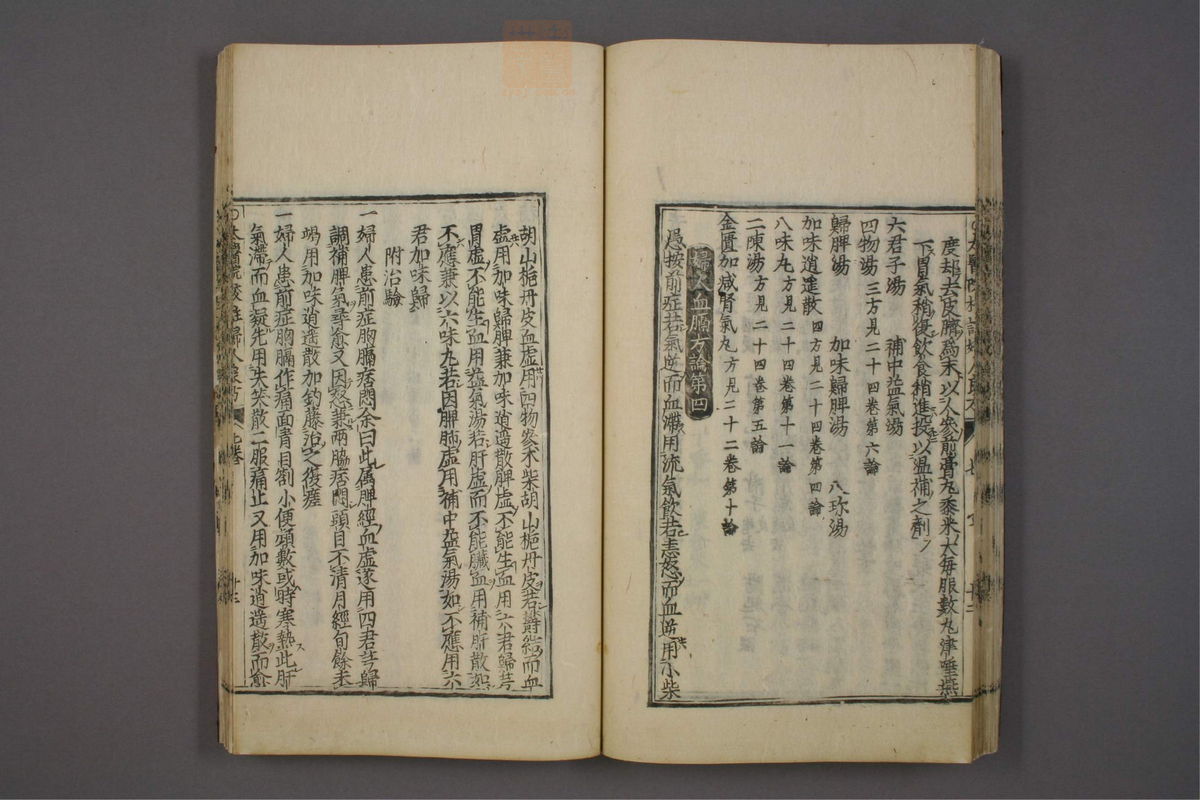 度却去皮臍為末以人參煎膏丸黍米大每服數丸津唾嚥
下胃氣稍復飲食稍進投以温補之劑
六君子湯 補中益氣湯
四物湯三方見二十四卷第六論
歸脾湯 加味歸脾湯 八珍湯
加味逍遥散四方見二十四卷第四論
八味丸方見二十四卷第十一論
二陳湯方見二十四卷第五論
金匱加减腎氣丸方見二十二卷第十論
婦人血膈方論第四
愚按前症若氣逆而血滯用流氣飲若恚怒而血逆用小柴
胡山梔丹皮血虚用四物參朮柴胡山梔丹皮若欝結而血
虚用加味歸脾兼加味逍遥散脾虚不能生血用六君歸芎
胃虚不能生血用益氣湯若肝虚而不能臟血用補肝散如
不應兼以六味丸若因脾肺虚用補中益氣湯如不應用六
君加味歸
附治驗
一婦人患前症胸膈痞悶余曰此属脾經血虚遂用四君芎歸
調補脾氣尋愈又因怒兼兩脇痞悶頭目不清月經旬餘未
竭用加味逍遥散加釣藤治之復痊
一婦人患前症胸膈作痛面青目劄小便頻數或時寒熱此肝
氣滯而血凝先用失笑散二服痛止又用加味逍遥散而愈